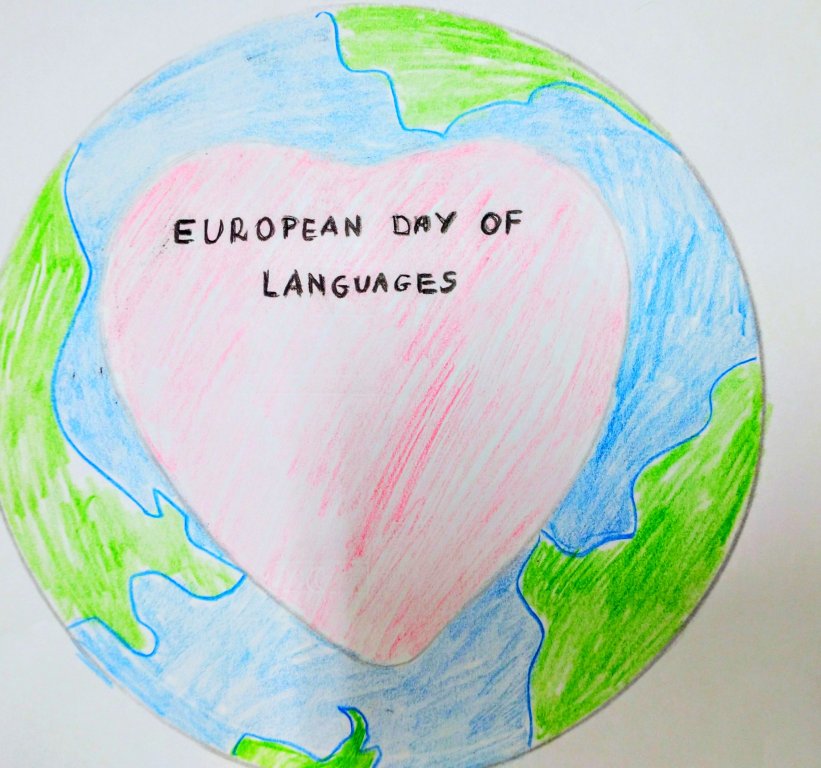 EUROPEAN DAY OF
LANGUAGES